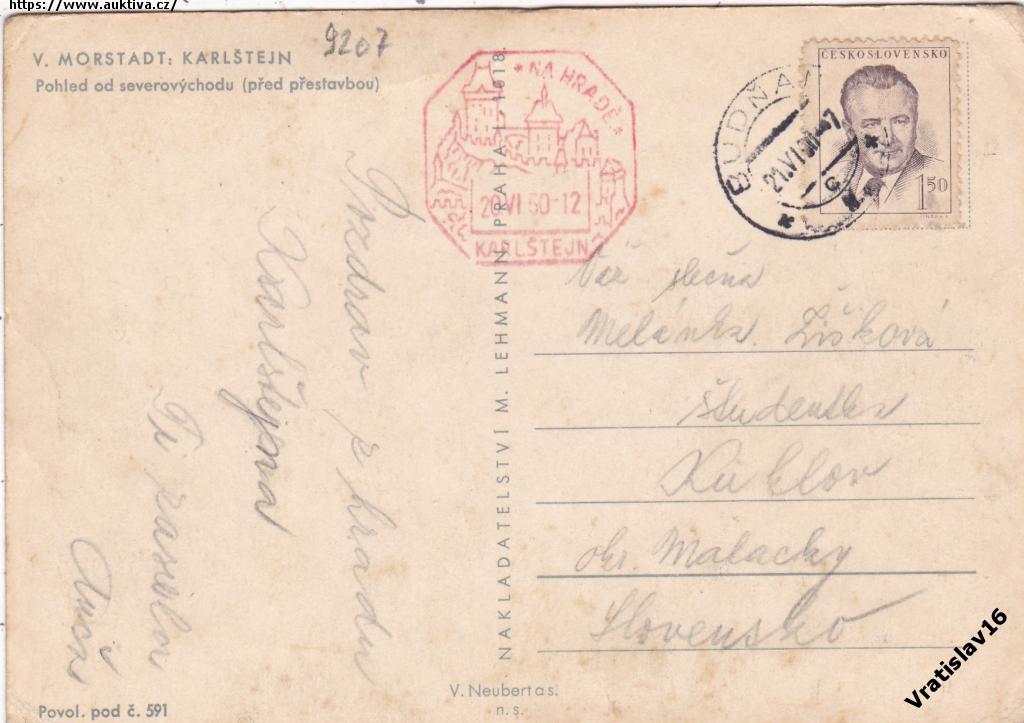 https://www.auktiva.cz/
9207
V. MORSTADT: KARLŠTEJN
Pohled od severovýchodu (před přestavbou)
* NA HRADĚ *
20 VI 50-12
KARLŠTEJN
BUDŇA
21.VI.50-7
ČESKOSLOVENSKO
1 50
Pozdrav z hradu
Karlštejna
Ti zasiela
NAKLADATELSTVÍ M. LEHMANN, PRAHA I., 1618.
Váž slečna
Melánka Žišková
študentka
Kuklov
okr. Malacky
Slovensko
V. Neubert a s.
n. s.
Povol. pod č. 591
Vratislav16